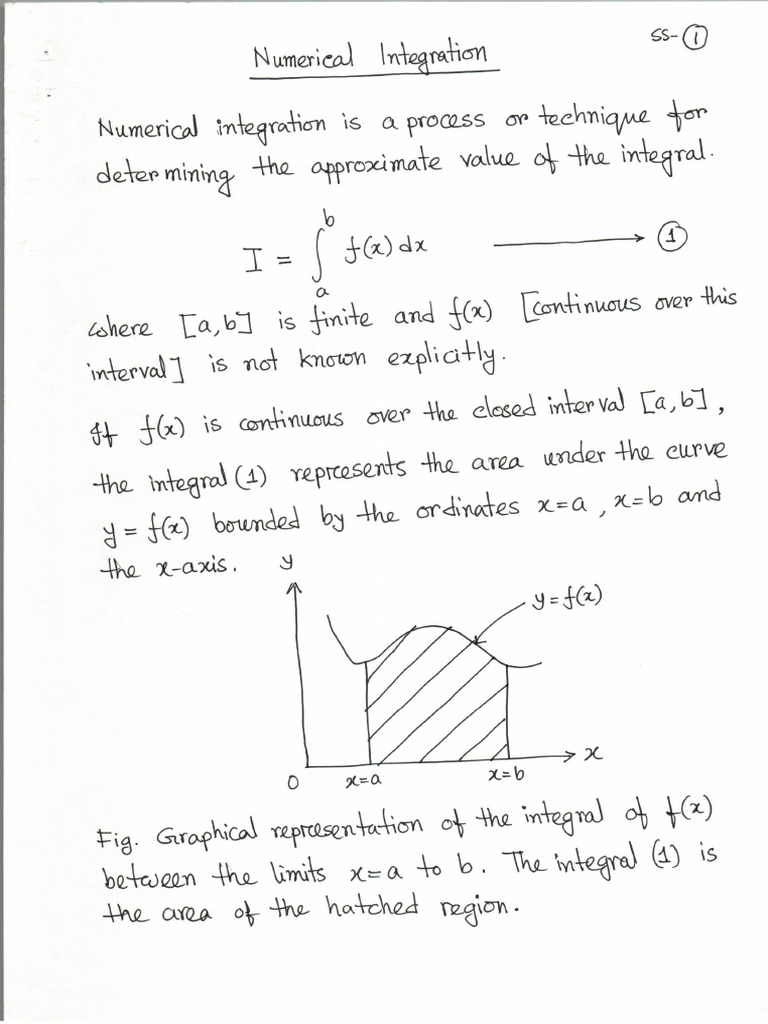 SS-①
Numerical Integration
Numerical integration is a process or technique for
determining the approximate value of the integral.
I = ∫ₐᵇ f(x) dx ⟶ ①
where [a,b] is finite and f(x) [continuous over this
interval] is not known explicitly.
If f(x) is continuous over the closed interval [a,b],
the integral (1) represents the area under the curve
y = f(x) bounded by the ordinates x=a, x=b and
the x-axis.
y
y=f(x)
x
0 x=a x=b
Fig. Graphical representation of the integral of f(x)
between the limits x=a to b. The integral (1) is
the area of the hatched region.